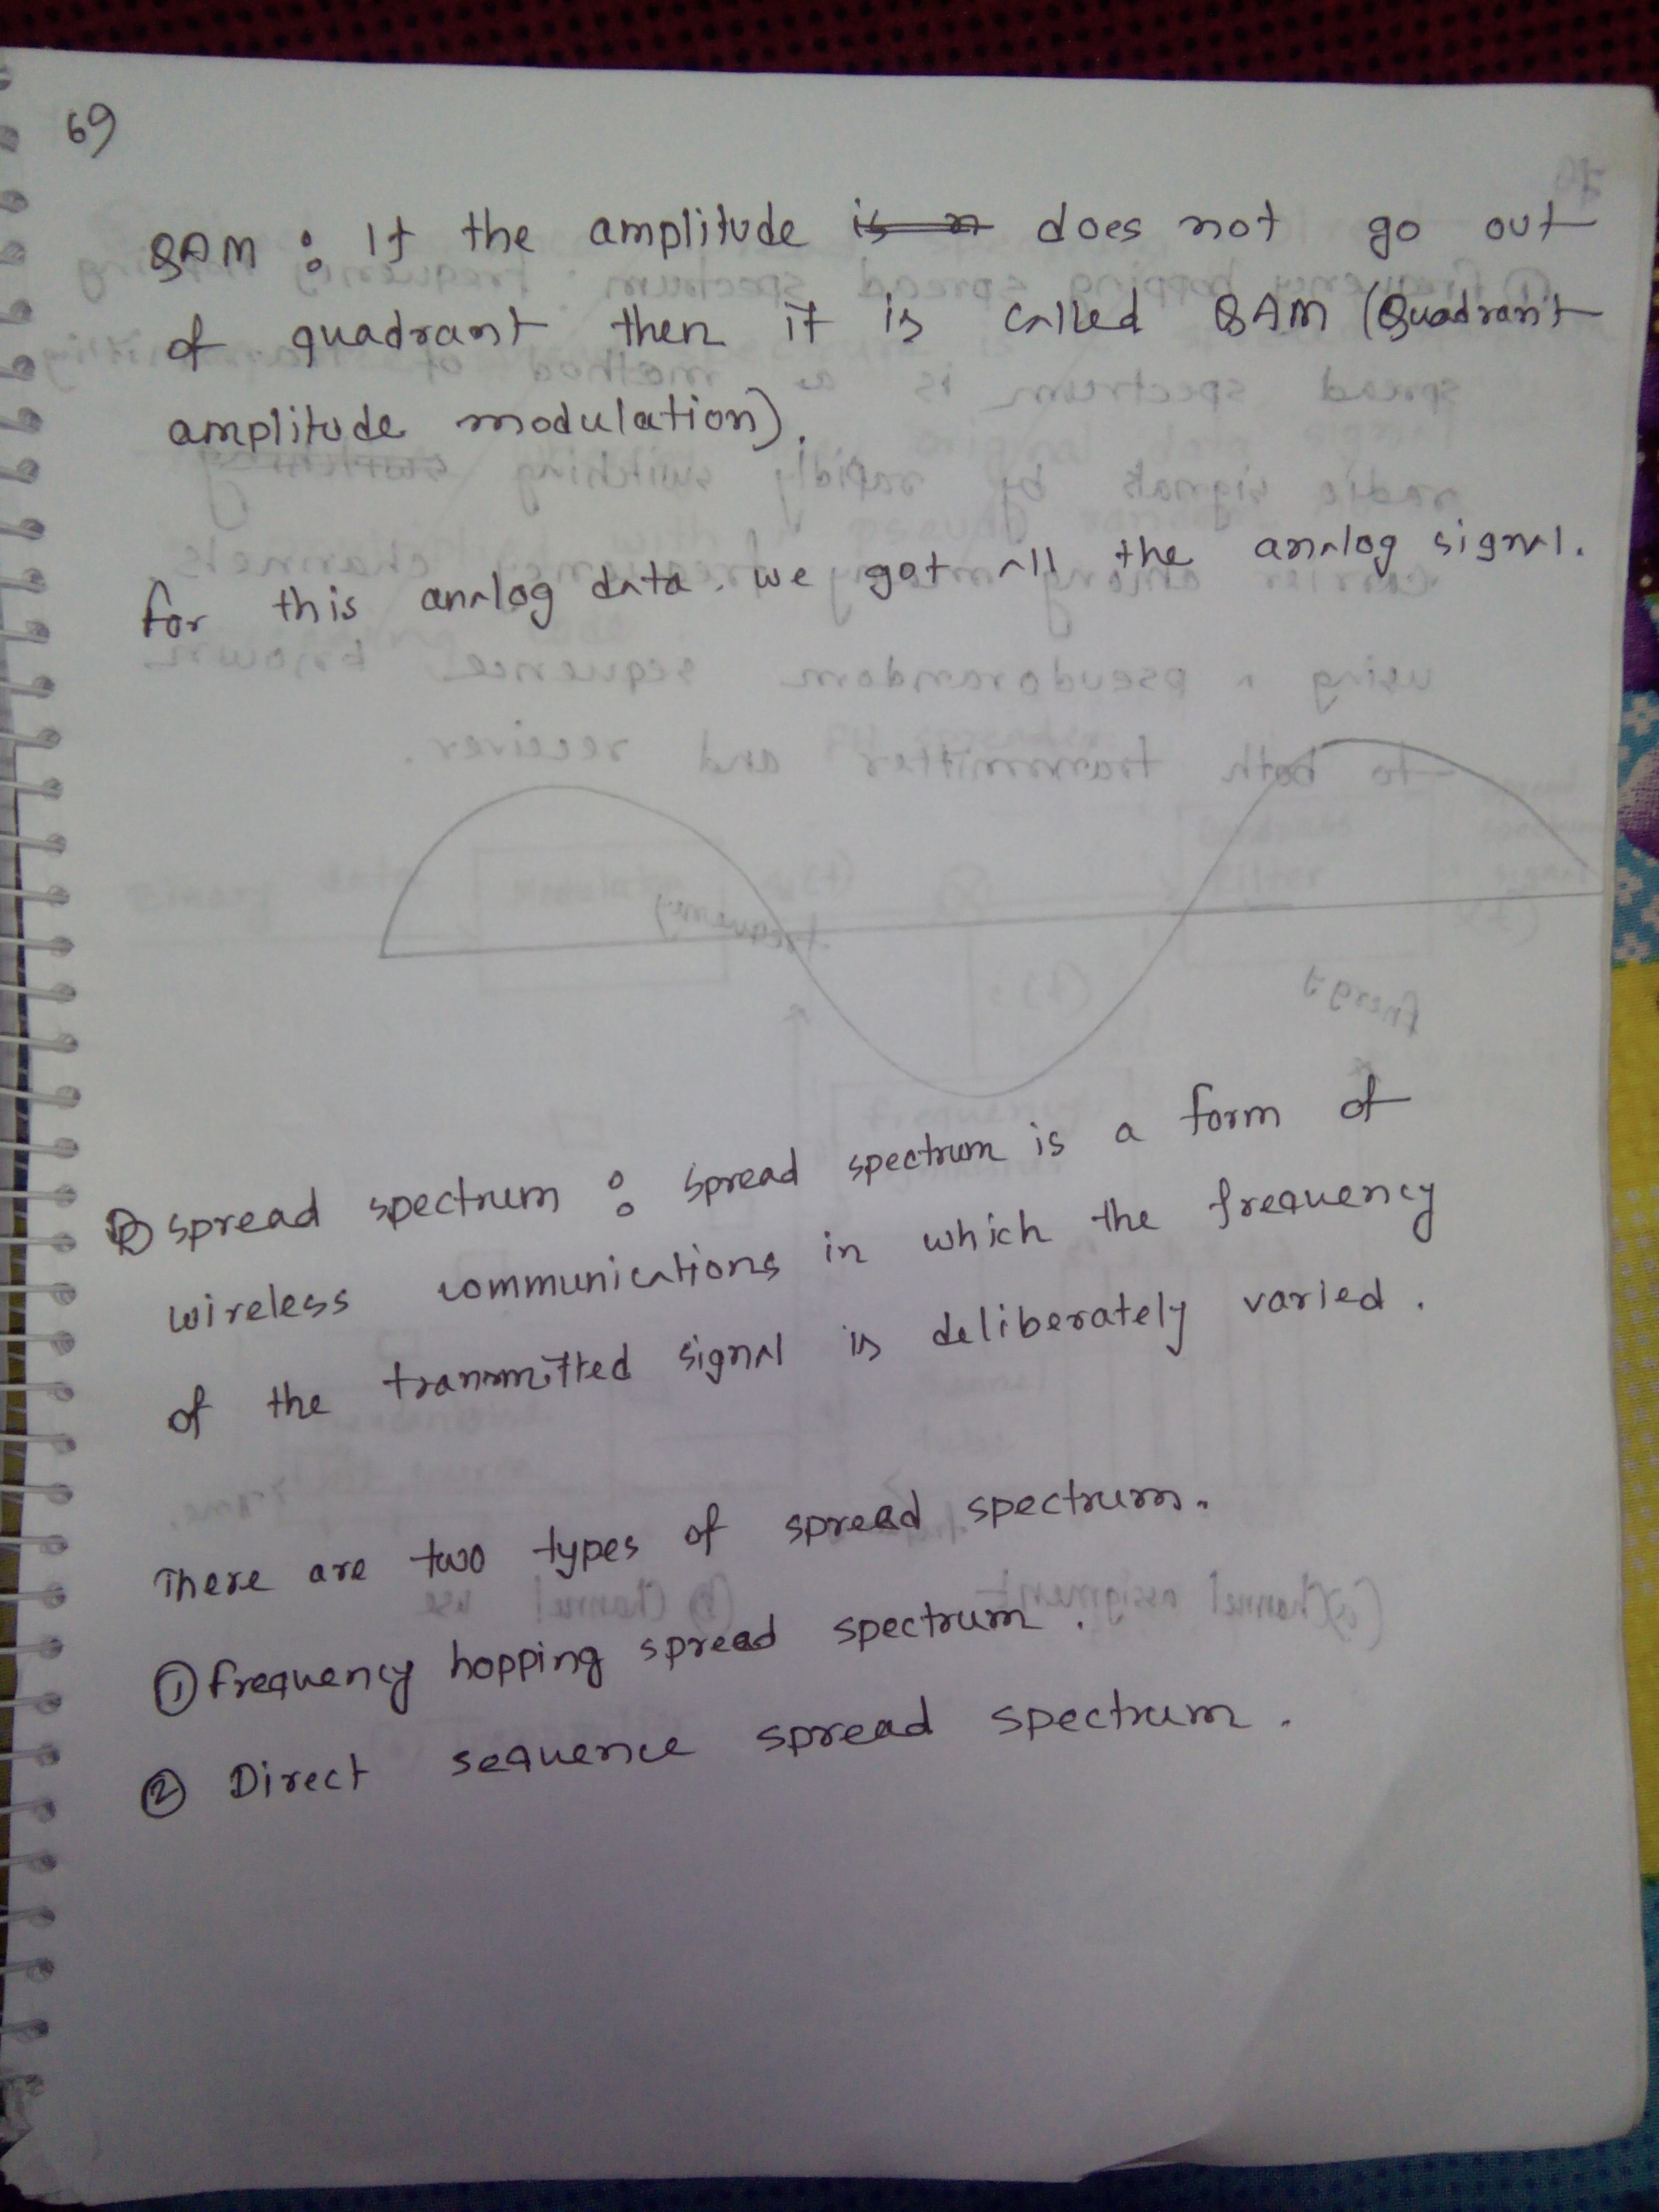 69
QAM : If the amplitude is n does not go out
of quadrant then it is called QAM (Quadrant
amplitude modulation).
for this analog data. we got all the analog signal.
spread spectrum : spread spectrum is a form of
wireless communications in which the frequency
of the transmitted signal is deliberately varied.
There are two types of spread spectrum.
① frequency hopping spread spectrum.
② Direct sequence spread spectrum.